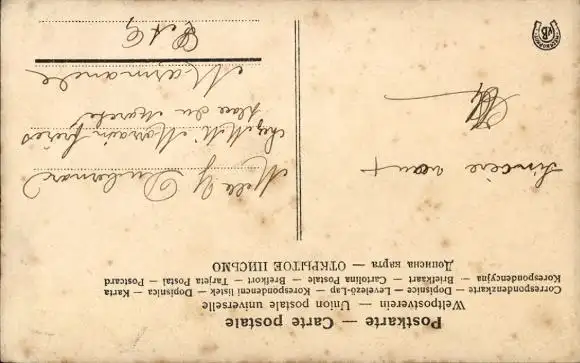 Postkarte — Carte postale
Weltpostverein — Union postale universelle
Correspondenzkarte — Dopisnice — Levelező-Lap — Korespondencni listek — Dopisnica — Karta
Korespondencyjna — Briefkaart — Cartolina Postale — Brefkort — Tarjeta Postal — Postcard
Дописна карта — ОТКРЫТОЕ ПИСЬМО
Sincèrement
Melle Y
chez M. M. frères
Place du Marché
Marmande
L et G